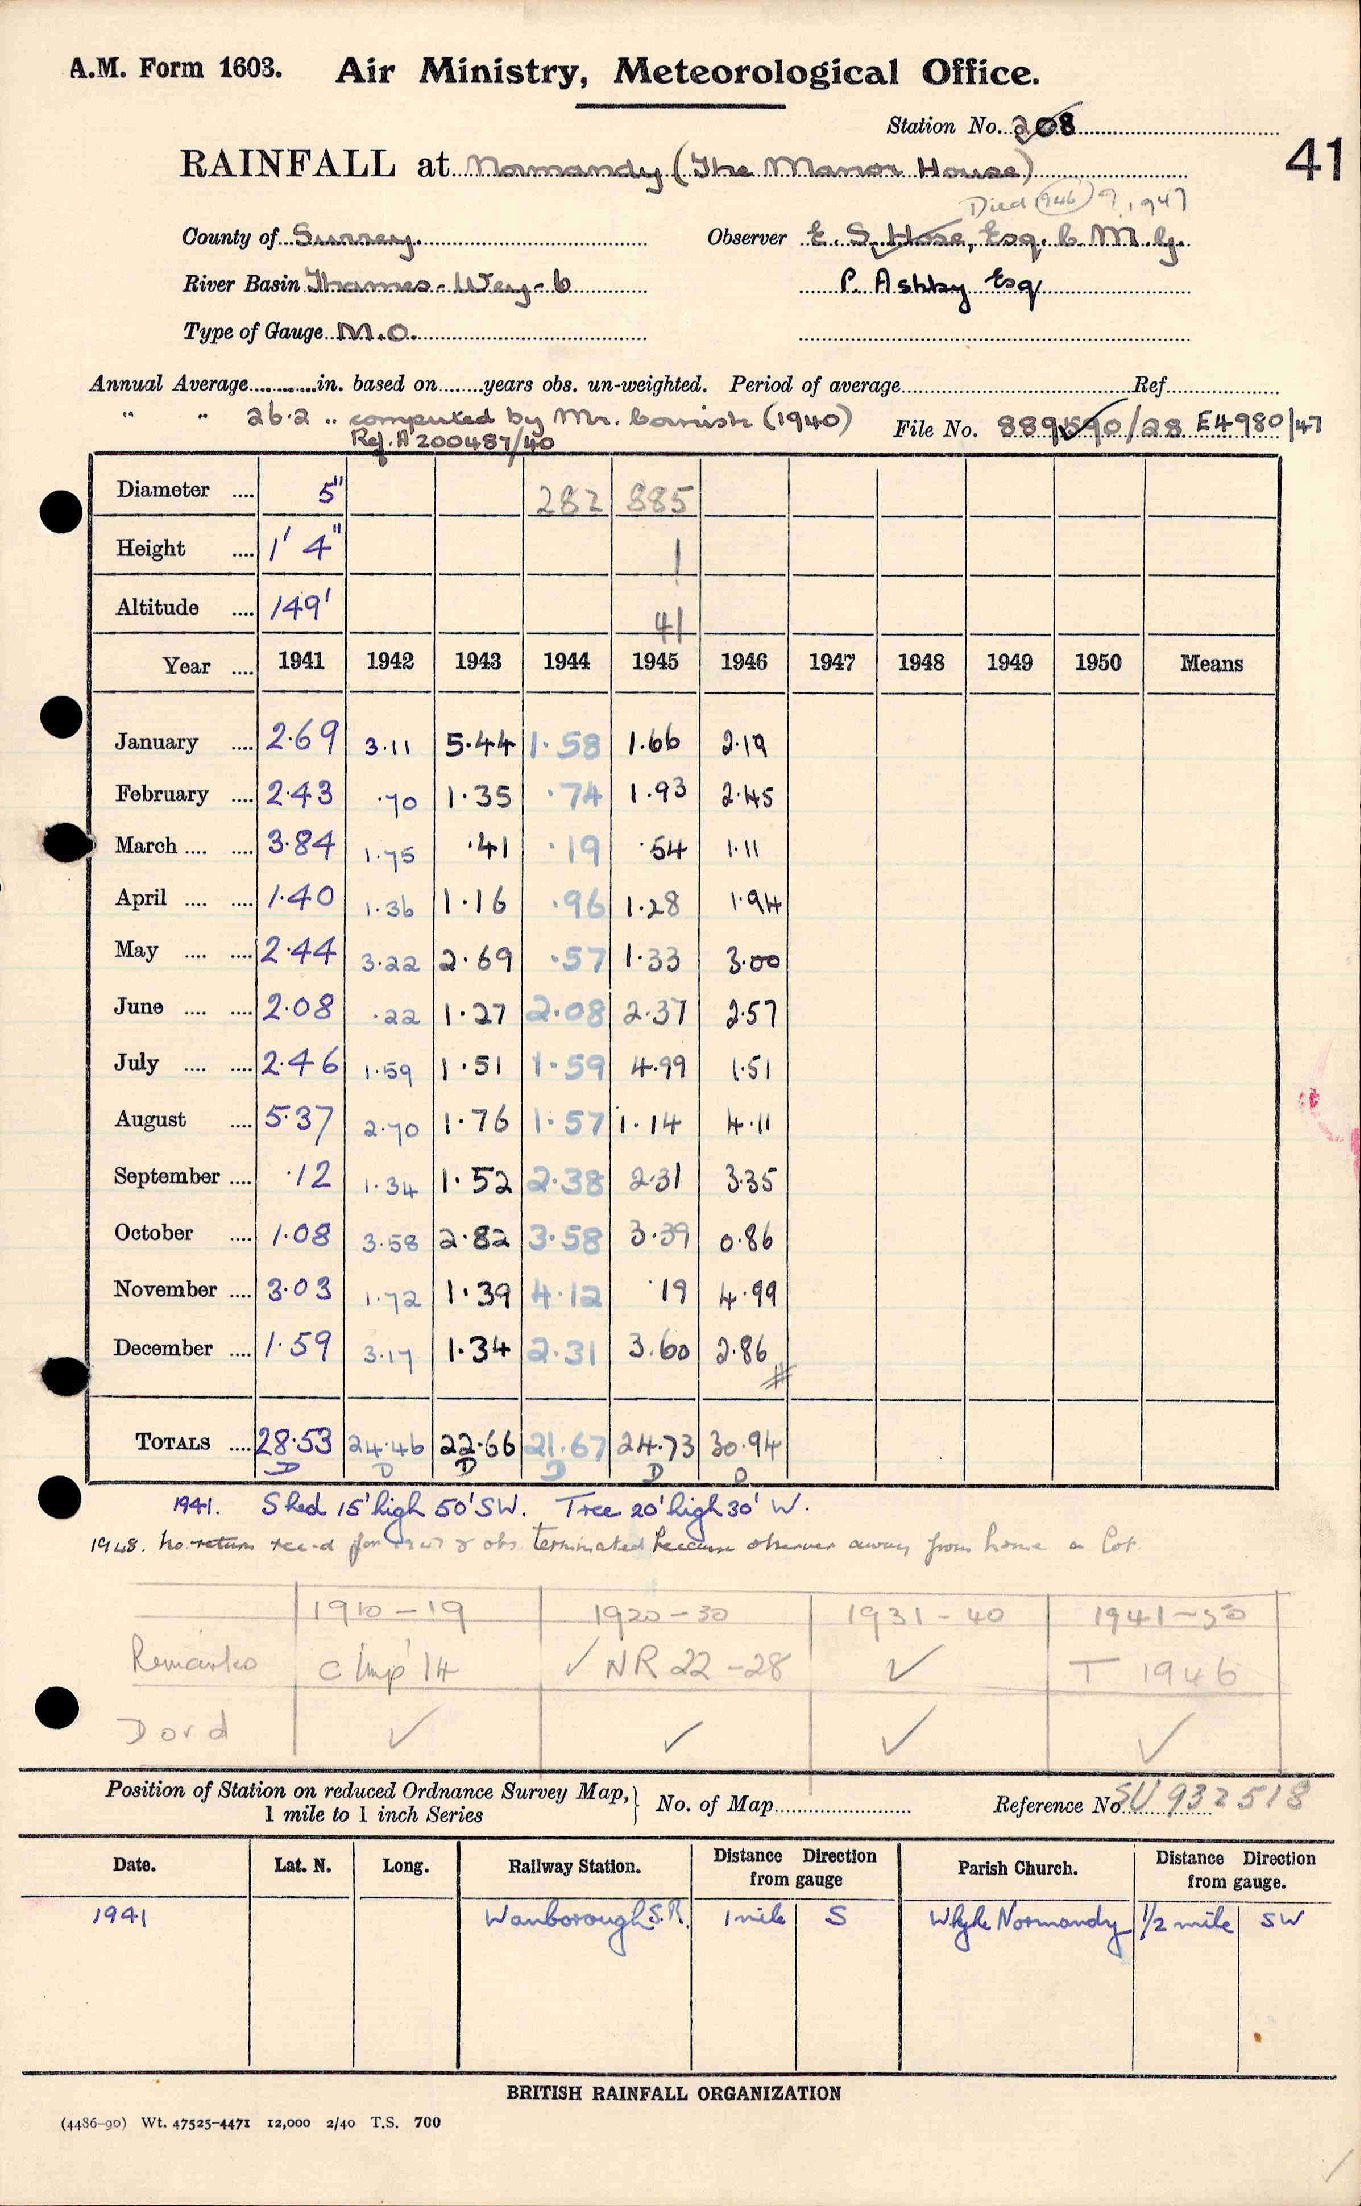 A.M. Form 1603. Air Ministry, Meteorological Office.
Station No. 208
41
RAINFALL at Normandy (The Manor House)
Died 1946 ? 1947
County of Surrey. Observer E. S. Hose, Esq. C. M. G.
River Basin Thames - Wey - b P. Ashby Esq
Type of Gauge M.O.
Annual Average in. based on years obs. un-weighted. Period of average Ref
" " 26.2 .. computed by Mr. Cornish (1940) File No. 889590/28 E4980/47
Ref. A200487/40
Diameter .... 5" 282 885
Height .... 1' 4" 1
Altitude .... 149' 41
Year .... 1941 1942 1943 1944 1945 1946 1947 1948 1949 1950 Means
January .... 2.69 3.11 5.44 1.58 1.66 2.19
February .... 2.43 .70 1.35 .74 1.93 2.45
March .... .... 3.84 1.75 .41 .19 .54 1.11
April .... .... 1.40 1.36 1.16 .96 1.28 1.94
May .... .... 2.44 3.22 2.69 .57 1.33 3.00
June .... .... 2.08 .22 1.27 2.08 2.37 2.57
July .... .... 2.46 1.59 1.51 1.59 4.99 1.51
August .... 5.37 2.70 1.76 1.57 1.14 4.11
September .... .12 1.34 1.52 2.38 2.31 3.35
October .... 1.08 3.58 2.82 3.58 3.39 0.86
November .... 3.03 1.72 1.39 4.12 .19 4.99
December .... 1.59 3.17 1.34 2.31 3.60 2.86
#
TOTALS .... 28.53 24.46 22.66 21.67 24.73 30.94
D D D D D D
1941. Shed 15' high 50' SW. Tree 20' high 30' W.
1948. No return rec-d for 1947 & obs. terminated because observer away from home a lot.
1910-19 1920-30 1931-40 1941-50
Remarks C Imp 14 ✓ NR 22-28 ✓ T 1946
D or d ✓ ✓ ✓ ✓
Position of Station on reduced Ordnance Survey Map, 1 mile to 1 inch Series } No. of Map Reference No SU 932518
Date. Lat. N. Long. Railway Station. Distance Direction from gauge Parish Church. Distance Direction from gauge.
1941 Wanborough S.R. 1 mile S Wyke Normandy 1/2 mile SW
BRITISH RAINFALL ORGANIZATION
(4486-90) Wt. 47525-4471 12,000 2/40 T.S. 700